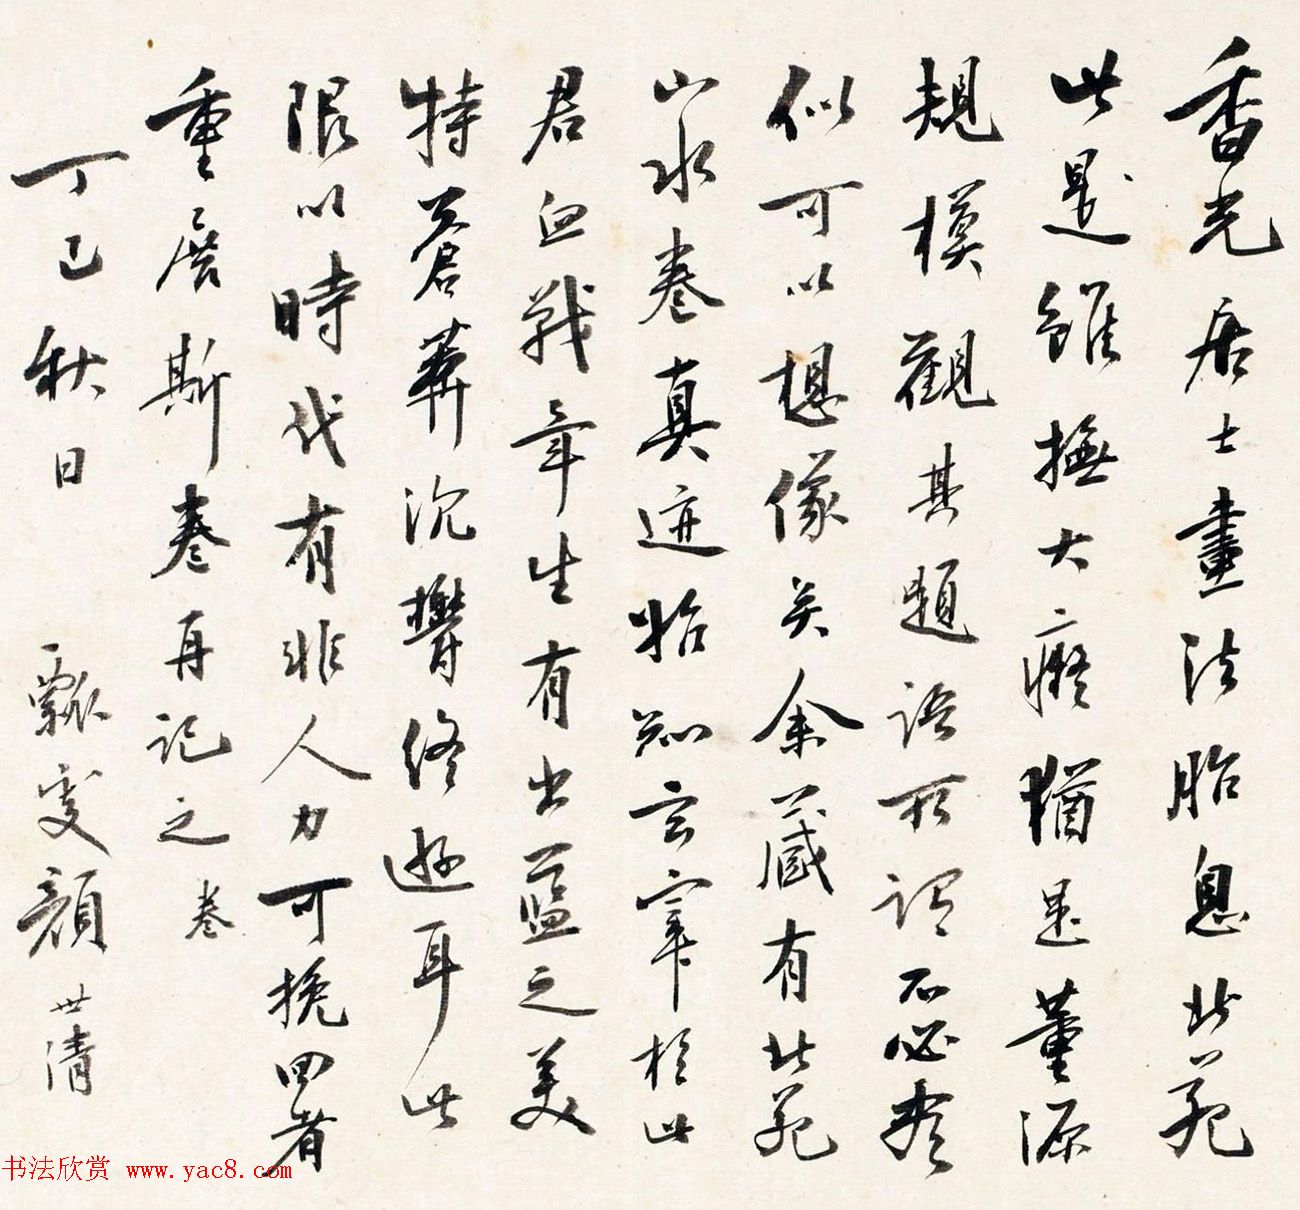 香光居士畫法胎息北苑
此是雖撫大癡猶是董源
規模觀其題語所謂不必盡
似可以想像矣余藏有北苑
山水卷真迹始知玄宰於此
君血戰年生有出藍之美
特蒼莽沉鬱終遜耳此
限以時代有非人力可挽回者
重展斯卷再記之 卷
丁巳秋日 瓢叟顏世清
书法欣赏 www.yac8.com